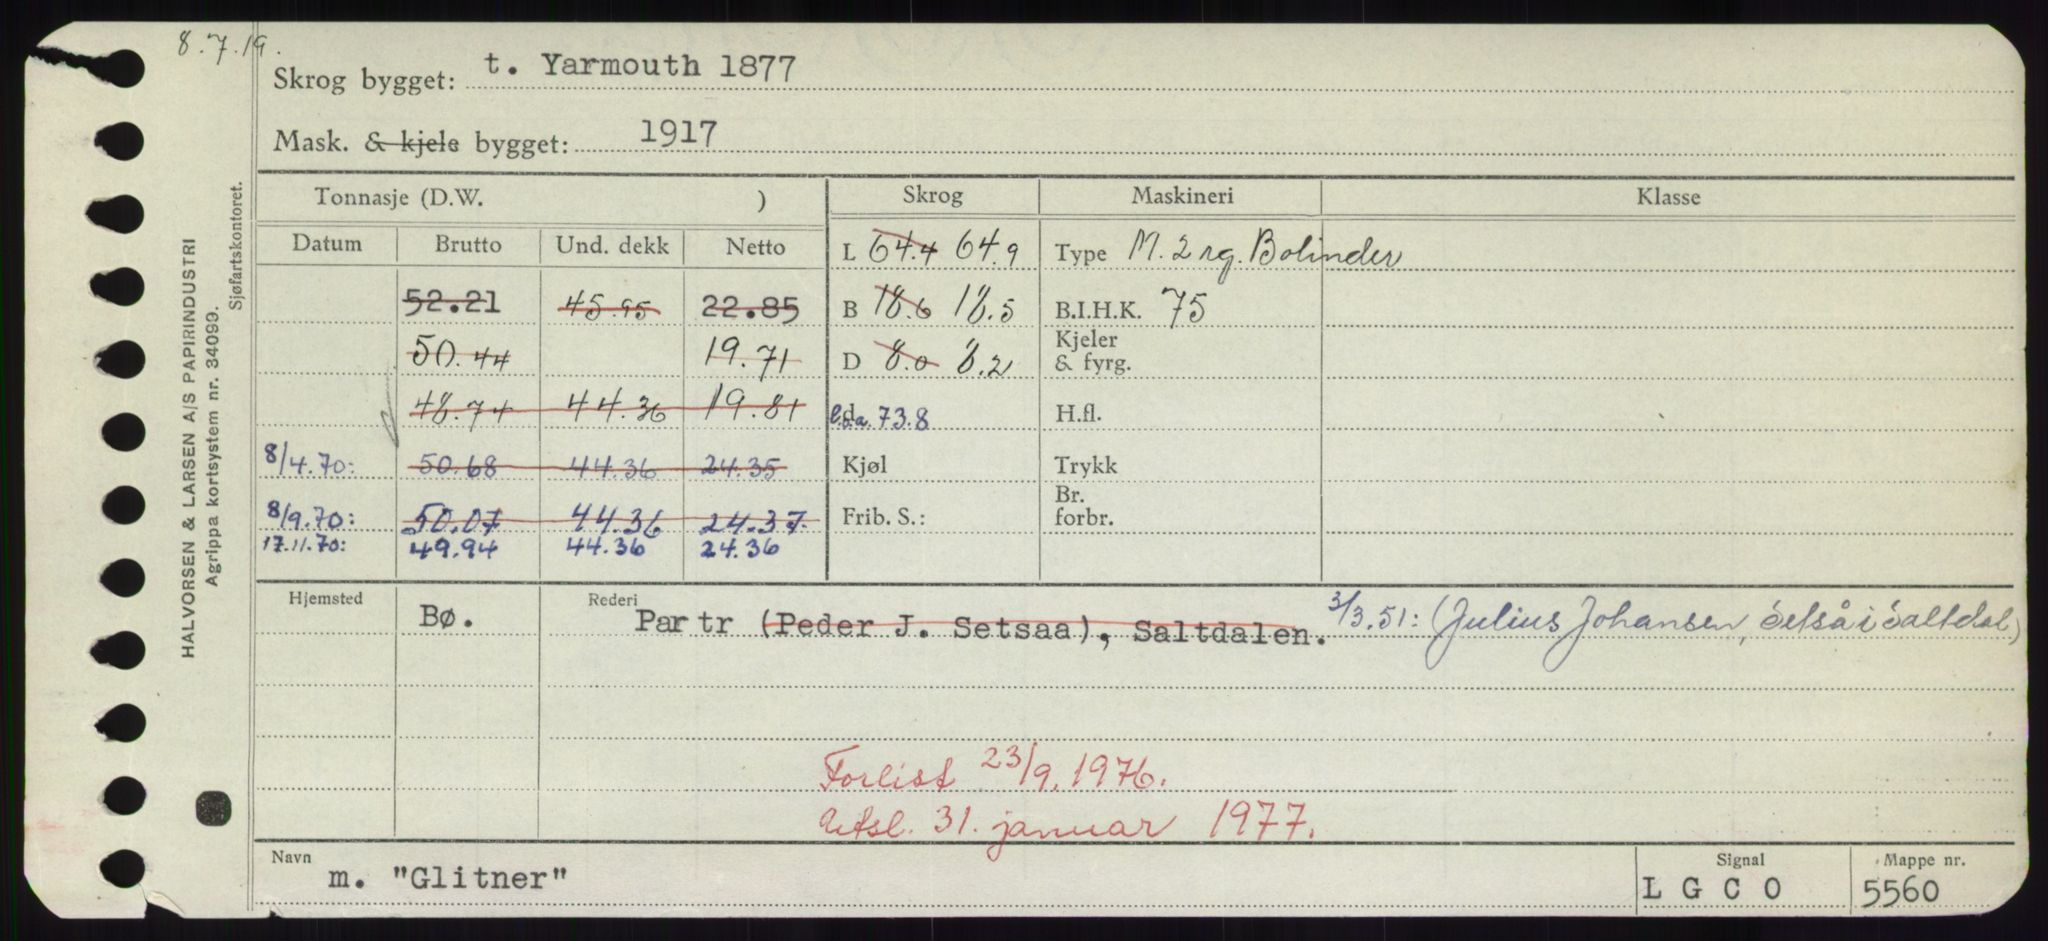 8.7.19.
Skrog bygget: t. Yarmouth 1877
Mask. & kjele bygget: 1917
HALVORSEN & LARSEN A/S PAPIRINDUSTRI
Agrippa kortsystem nr. 34099.
Sjøfartskontoret.
Tonnasje (D.W. ) Skrog Maskineri Klasse
Datum Brutto Und. dekk Netto L 64.4 64.9 Type M. 2 rg. Bolinder
52.21 45.95 22.85 B 18.6 18.5 B.I.H.K. 75
50.44 19.71 D 8.0 8.2 Kjeler & fyrg.
48.74 44.36 19.81 l.o.a. 73.8 H.fl.
8/4.70: 50.68 44.36 24.35 Kjøl Trykk
8/9.70: 50.07 44.36 24.37. Frib. S.: Br. forbr.
17.11.70: 49.94 44.36 24.36
Hjemsted Bø. Rederi Partr (Peder J. Setsaa), Saltdalen. 3/3.51: (Julius Johansen, Setså i Saltdal)
Forlist 23/9.1976.
Utsl. 31. januar 1977.
Navn m. "Glitner" Signal LGCO Mappe nr. 5560